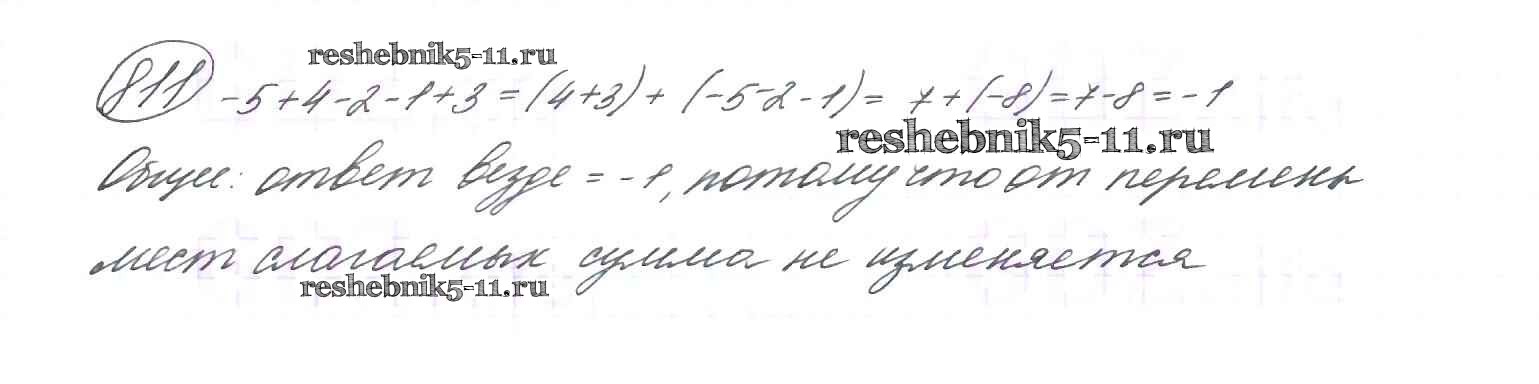 reshebnik5-11.ru
811 -5+4-2-1+3=(4+3)+(-5-2-1)= 7+(-8)=7-8=-1
reshebnik5-11.ru
Общее: ответ везде = -1, потому что от перемены
мест слагаемых сумма не изменяется
reshebnik5-11.ru